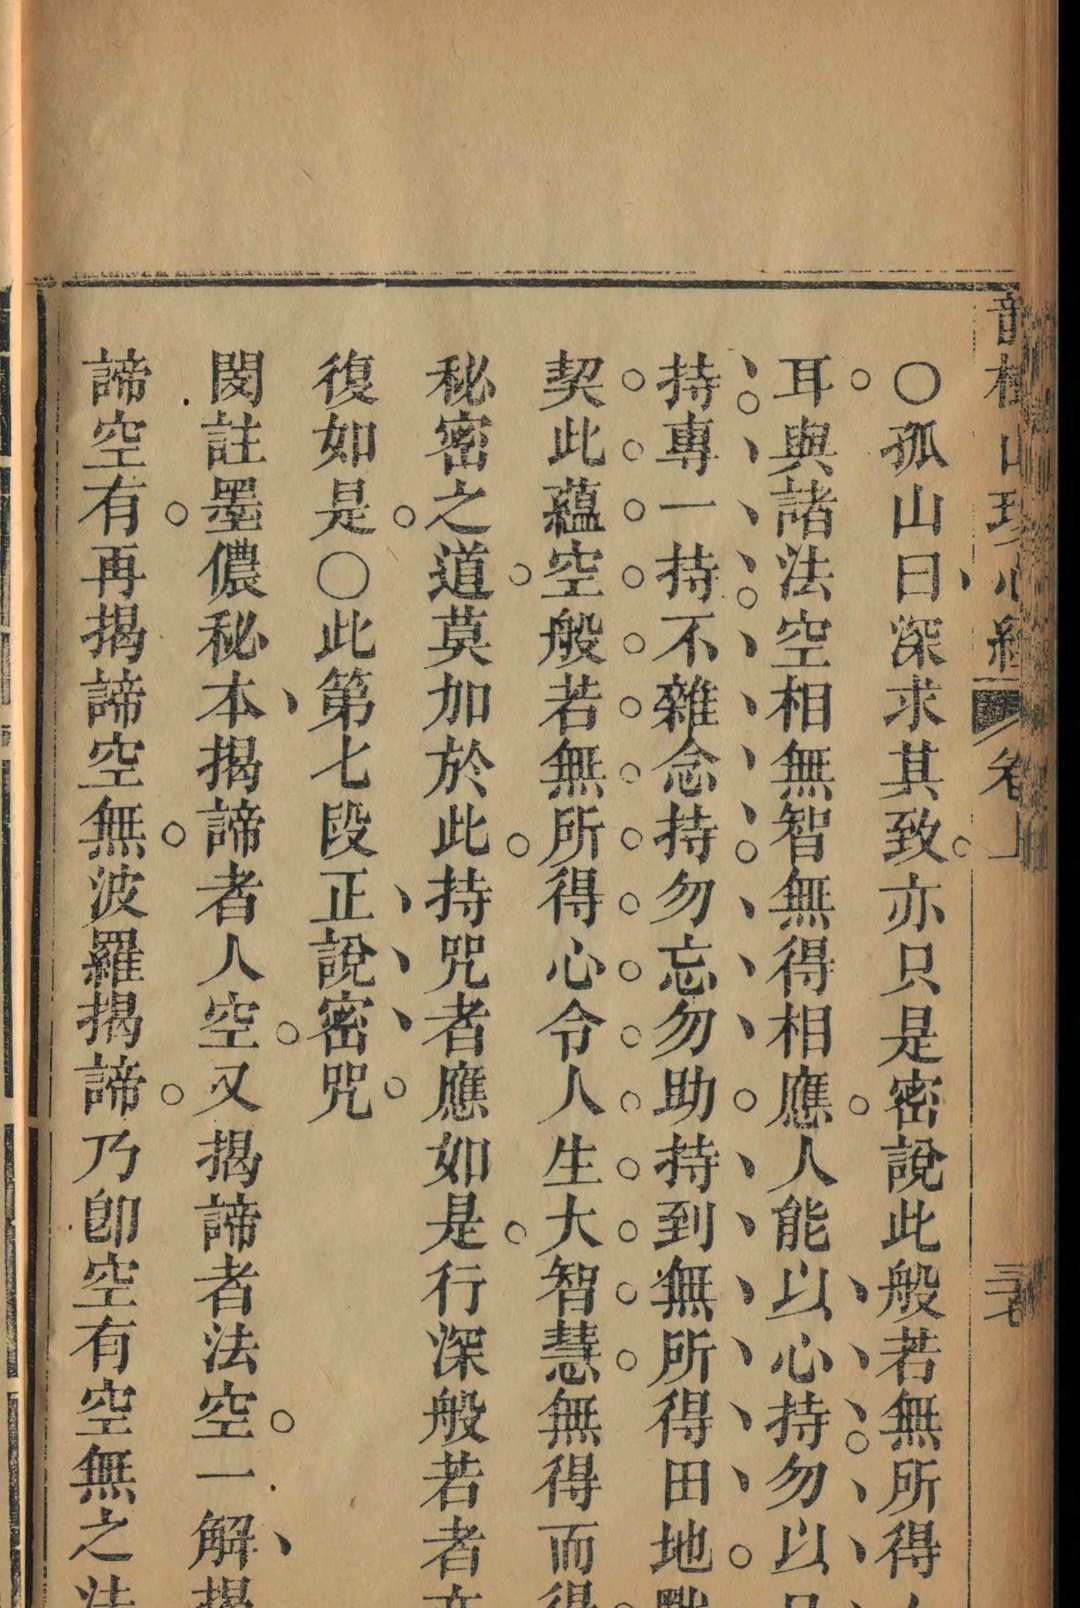 心經 卷上
〇孤山曰深求其致亦只是密說此般若無所得
耳與諸法空相無智無得相應人能以心持勿以
持專一持不雜念持勿忘勿助持到無所得田地
契此蘊空般若無所得心令人生大智慧無得而得
秘密之道莫加於此持咒者應如是行深般若者亦
復如是〇此第七段正說密咒
閔註墨儂秘本揭諦者人空又揭諦者法空一解揭
諦空有再揭諦空無波羅揭諦乃卽空有空無之法